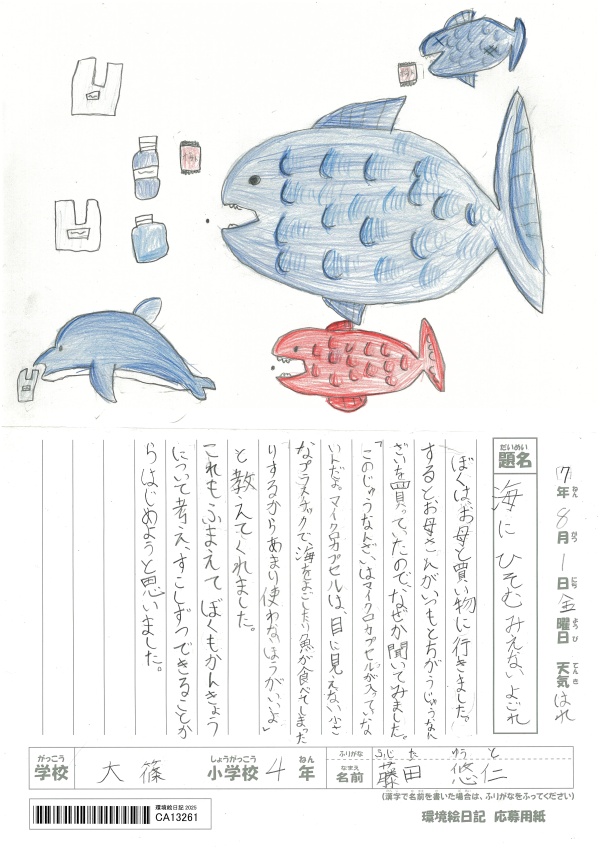 (7)年8月1日金曜日 天気はれ
ねん がつ にち ようび てんき
だいめい
題名
海にひそむみえないよごれ
ぼくは、お母と買い物に行きました。
するとお母さんがいつもとちがうじゅうなん
ざいを買っていたので、なぜか聞いてみました。
「このじゅうなんざいはマイクロカプセルが入っていな
いんだよ。マイクロカプセルは、目に見えない小さ
なプラスチックで、海をよごしたり魚が食べてしまった
りするからあまり使わないほうがいいよ」
と教えてくれました。
これもふまえてぼくもかんきょう
について考え、すこしずつできることか
らはじめようと思いました。
がっこう
学校
大篠
しょうがっこう
小学校
4
ねん
年
ふりがな
ふじた ゆうと
なまえ
名前
藤田 悠仁
(漢字で名前を書いた場合は、ふりがなをふってください)
環境絵日記 2025
CA13261
環境絵日記 応募用紙